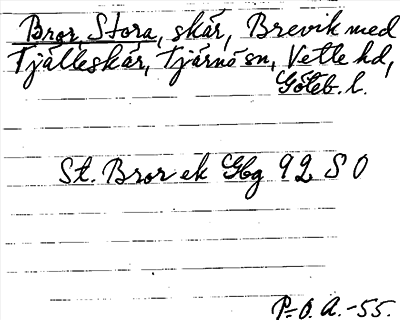 Bror, Stora, skär, Brevik med
Tjälleskär, Tjärnö sn, Vette hd,
Göteb. l.
St. Bror ek Gbg 92 S O
P-O. A. -55.